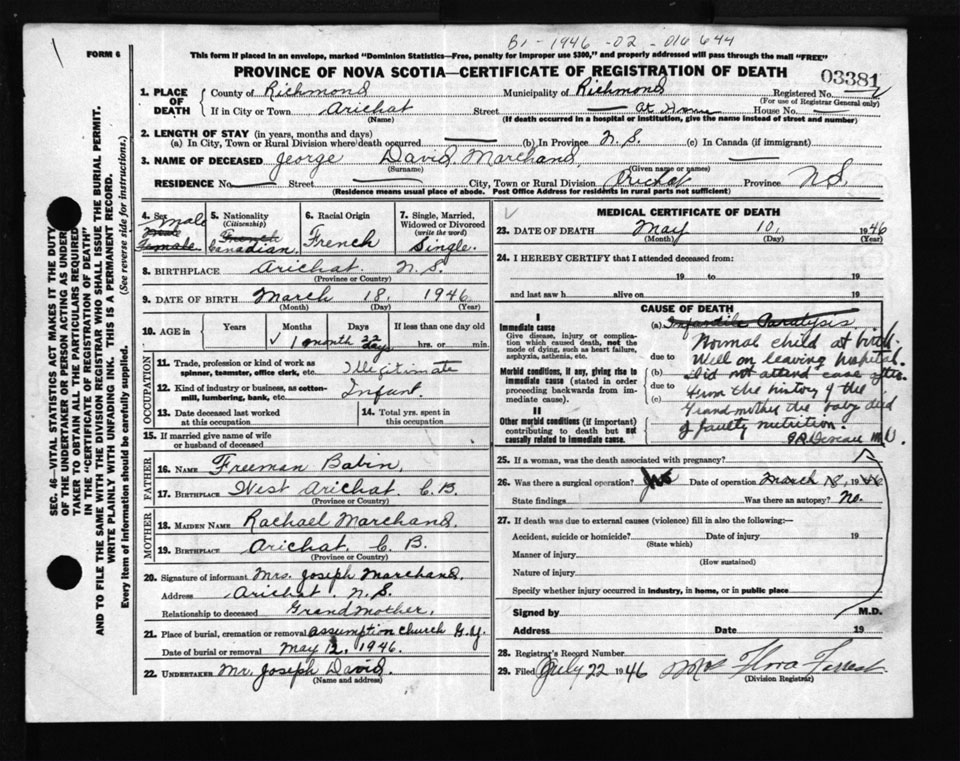 B1-1946-02-016644
FORM 6
This form if placed in an envelope, marked "Dominion Statistics—Free, penalty for improper use $300," and properly addressed will pass through the mail "FREE"
PROVINCE OF NOVA SCOTIA—CERTIFICATE OF REGISTRATION OF DEATH
03381
SEC. 46—VITAL STATISTICS ACT MAKES IT THE DUTY
OF THE UNDERTAKER OR PERSON ACTING AS UNDER
TAKER TO OBTAIN ALL THE PARTICULARS REQUIRED
IN THE "CERTIFICATE OF REGISTRATION OF DEATH"
AND TO FILE THE SAME WITH THE DIVISION REGISTRAR WHO SHALL ISSUE THE BURIAL PERMIT.
WRITE PLAINLY WITH UNFADING INK. THIS IS A PERMANENT RECORD.
Every item of Information should be carefully supplied. (See reverse side for instructions.)
1. PLACE OF DEATH County of Richmond Municipality of Richmond Registered No.
(For use of Registrar General only)
If in City or Town Arichat Street — At Home House No. —
(Name) (If death occurred in a hospital or institution, give the name instead of street and number)
2. LENGTH OF STAY (in years, months and days)
(a) In City, Town or Rural Division where death occurred — (b) In Province N.S. (c) In Canada (if immigrant) —
3. NAME OF DECEASED George David Marchand,
(Surname) (Given name or names)
RESIDENCE No. — Street — City, Town or Rural Division Arichat Province N.S.
(Residence means usual place of abode. Post Office Address for residents in rural parts not sufficient)
4. Sex Male
Male
Female
5. Nationality
(Citizenship)
French
Canadian.
6. Racial Origin
French
7. Single, Married, Widowed or Divorced
(write the word)
Single.
8. BIRTHPLACE Arichat. N.S.
(Province or Country)
9. DATE OF BIRTH March 18, 1946
(Month) (Day) (Year)
10. AGE in Years Months Days If less than one day old
1 month 22 days hrs. or min.
OCCUPATION
11. Trade, profession or kind of work as
spinner, teamster, office clerk, etc. Illegitimate
12. Kind of industry or business, as cotton-
mill, lumbering, bank, etc. Infant.
13. Date deceased last worked
at this occupation
14. Total yrs. spent in
this occupation
15. If married give name of wife
or husband of deceased
FATHER
16. NAME Freeman Babin,
17. BIRTHPLACE West Arichat. C.B.
(Province or Country)
MOTHER
18. MAIDEN NAME Rachael Marchand.
19. BIRTHPLACE Arichat. C.B.
(Province or Country)
20. Signature of informant Mrs. Joseph Marchand.
Address Arichat. N.S.
Relationship to deceased Grandmother.
21. Place of burial, cremation or removal Assumption Church G.Y.
Date of burial or removal May 12, 1946.
22. UNDERTAKER Mr. Joseph David.
(Name and address)
MEDICAL CERTIFICATE OF DEATH
23. DATE OF DEATH May 10, 1946
(Month) (Day) (Year)
24. I HEREBY CERTIFY that I attended deceased from:
19 to 19
and last saw h alive on 19
CAUSE OF DEATH
I
Immediate cause
Give disease, injury or complica-
tion which caused death, not the
mode of dying, such as heart failure,
asphyxia, asthenia, etc.
Morbid conditions, if any, giving rise to
immediate cause (stated in order
proceeding backwards from im-
mediate cause).
II
Other morbid conditions (if important)
contributing to death but not
causally related to immediate cause.
(a) Infantile Paralysis
Normal child at birth.
due to Well on leaving hospital.
(b) Did not attend case after.
due to From the history of the
(c) Grandmother the baby died
of faulty nutrition.
M.D.
25. If a woman, was the death associated with pregnancy?
26. Was there a surgical operation? No Date of operation March 18, 1946
State findings Was there an autopsy? No.
27. If death was due to external causes (violence) fill in also the following:—
Accident, suicide or homicide? Date of injury 19
(State which)
Manner of injury
(How sustained)
Nature of injury
Specify whether injury occurred in industry, in home, or in public place
Signed by M.D.
Address Date 19
28. Registrar's Record Number
29. Filed July 22 1946 Mrs Flora Forrest
(Division Registrar)